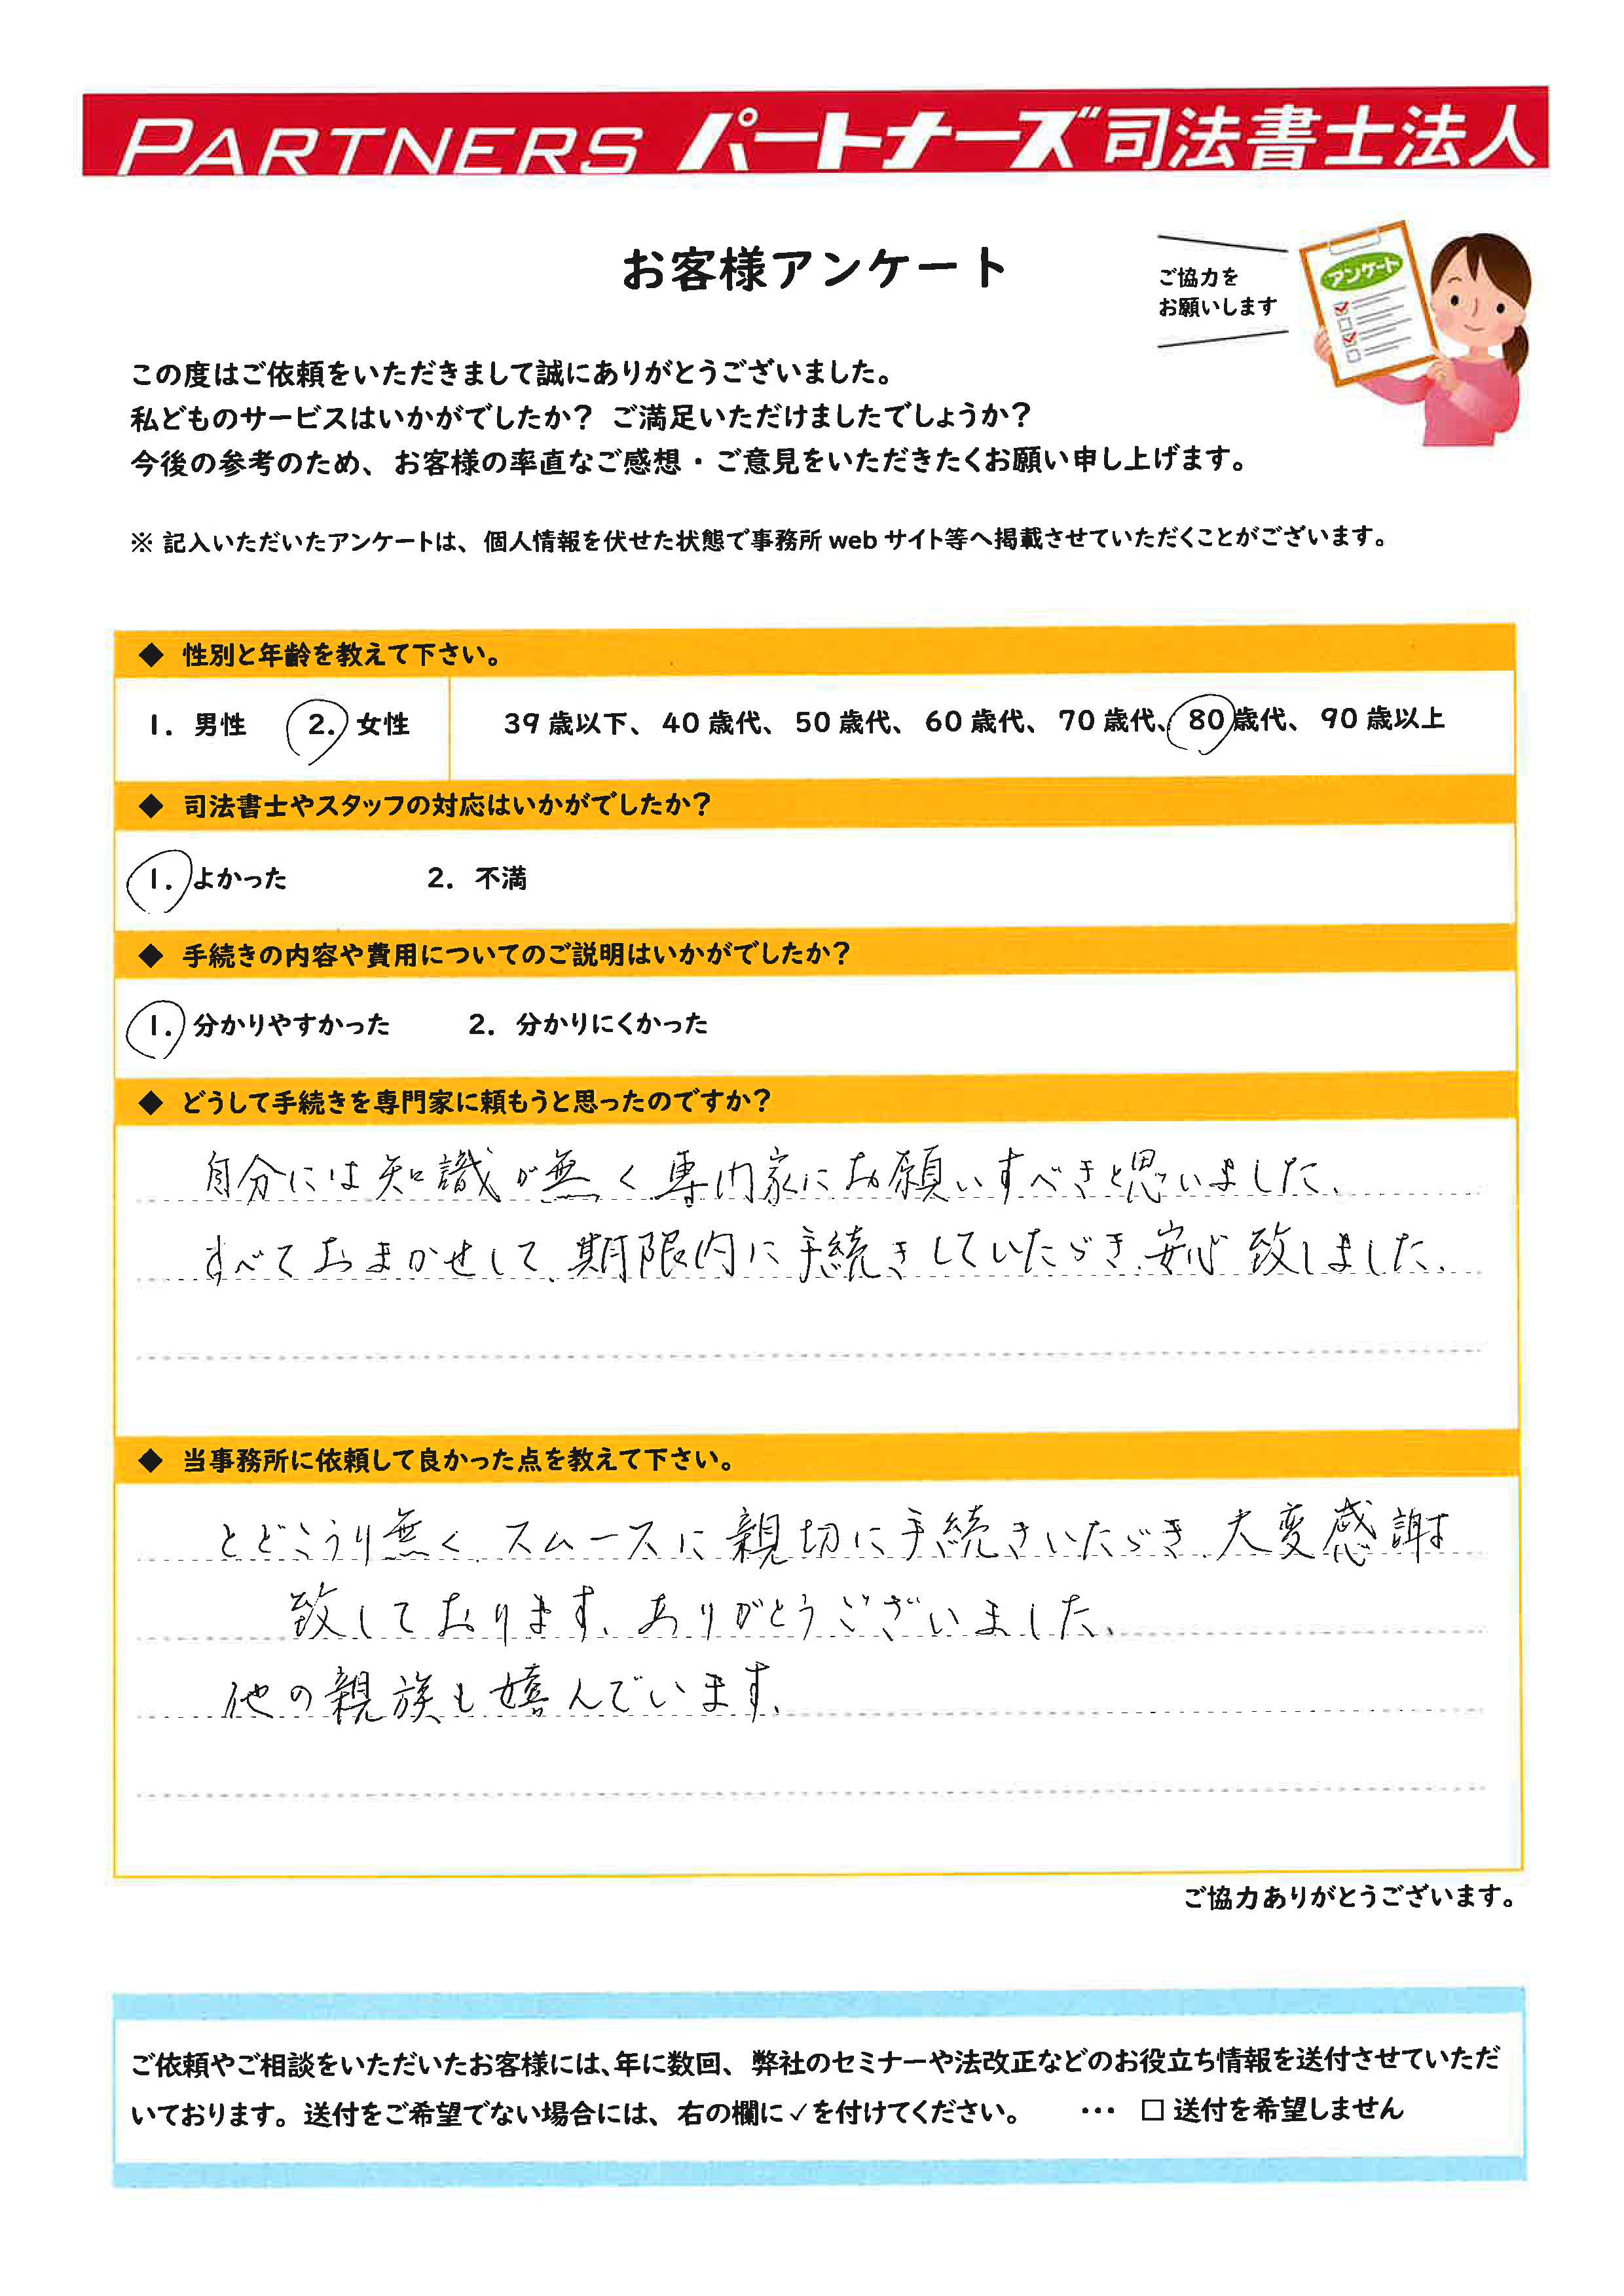 PARTNERS パートナーズ司法書士法人
お客様アンケート
ご協力を
お願いします
アンケート
この度はご依頼をいただきまして誠にありがとうございました。
私どものサービスはいかがでしたか？ ご満足いただけましたでしょうか？
今後の参考のため、お客様の率直なご感想・ご意見をいただきたくお願い申し上げます。
※ 記入いただいたアンケートは、個人情報を伏せた状態で事務所 web サイト等へ掲載させていただくことがございます。
◆ 性別と年齢を教えて下さい。
1. 男性 2. 女性 39 歳以下、40 歳代、50 歳代、60 歳代、70 歳代、80 歳代、90 歳以上
◆ 司法書士やスタッフの対応はいかがでしたか？
1. よかった 2. 不満
◆ 手続きの内容や費用についてのご説明はいかがでしたか？
1. 分かりやすかった 2. 分かりにくかった
◆ どうして手続きを専門家に頼もうと思ったのですか？
自分には知識が無く専門家にお願いすべきと思いました、
すべておまかせして、期限内に手続きしていただき、安心致しました、
◆ 当事務所に依頼して良かった点を教えて下さい。
とどこうり無く、スムースに親切に手続きいただき、大変感謝
致しております、ありがとうございました、
他の親族も嬉んでいます、
ご協力ありがとうございます。
ご依頼やご相談をいただいたお客様には、年に数回、弊社のセミナーや法改正などのお役立ち情報を送付させていただ
いております。送付をご希望でない場合には、右の欄に✓を付けてください。 … □ 送付を希望しません